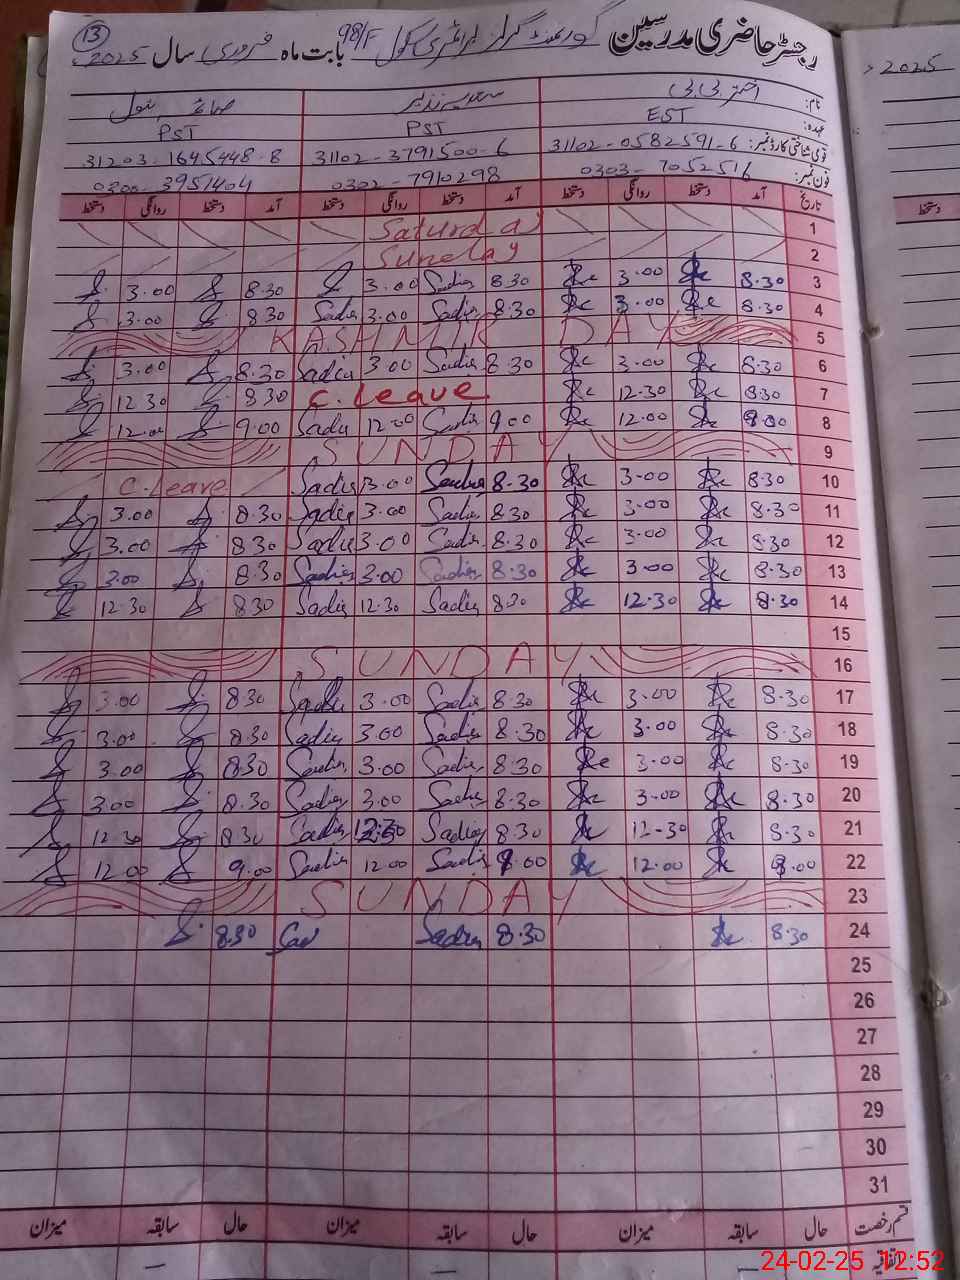 13 رجسٹر حاضری مدرسین گورنمنٹ گرلز پرائمری سکول 98/F بابت ماہ فروری سال 2025
نام: اختر بی بی سعدیہ نذیر صائمہ بتول
عہدہ: EST PST PST
قومی شناختی کارڈ نمبر: 31102-0582591-6 31102-3791500-6 31203-1645448-8
فون نمبر: 0303-7052516 0302-7910298 0300-3951404
تاریخ آمد دستخط روانگی دستخط آمد دستخط روانگی دستخط آمد دستخط روانگی دستخط
1 Saturday
2 Sunday
3 8.30 3.00 8.30 Sadia 3.00 8.30 3.00
4 8.30 3.00 8.30 Sadia 3.00 Sadia 8.30 3.00
5 KASHMIR DAY
6 8.30 3.00 8.30 Sadia 3.00 Sadia 8.30 3.00
7 8.30 12.30 C.Leave 8.30 12.30
8 8.00 12.00 9.00 Sadia 12.00 Sadia 9.00 12.00
9 SUNDAY
10 8.30 3.00 8.30 Sadia 3.00 Sadia C.Leave
11 8.30 3.00 8.30 Sadia 3.00 Sadia 8.30 3.00
12 8.30 3.00 8.30 Sadia 3.00 Sadia 8.30 3.00
13 8.30 3.00 8.30 Sadia 3.00 Sadia 8.30 3.00
14 8.30 12.30 8.30 Sadia 12.30 Sadia 8.30 12.30
15
16 SUNDAY
17 8.30 3.00 8.30 Sadia 3.00 Sadia 8.30 3.00
18 8.30 3.00 8.30 Sadia 3.00 Sadia 8.30 3.00
19 8.30 3.00 8.30 Sadia 3.00 Sadia 8.30 3.00
20 8.30 3.00 8.30 Sadia 3.00 Sadia 8.30 3.00
21 8.30 12-30 8.30 Sadia 12.30 Sadia 8.30 12.30
22 12.00 Sadia 12.00 Sadia 9.00 12.00
23 SUNDAY
24 8.30 8.30 Sadia Sad 8.30
25
26
27
28
29
30
31
قسم رخصت حال سابقہ میزان حال سابقہ میزان حال سابقہ میزان
اتفاقیہ
2025
دستخط
24-02-25 12:52